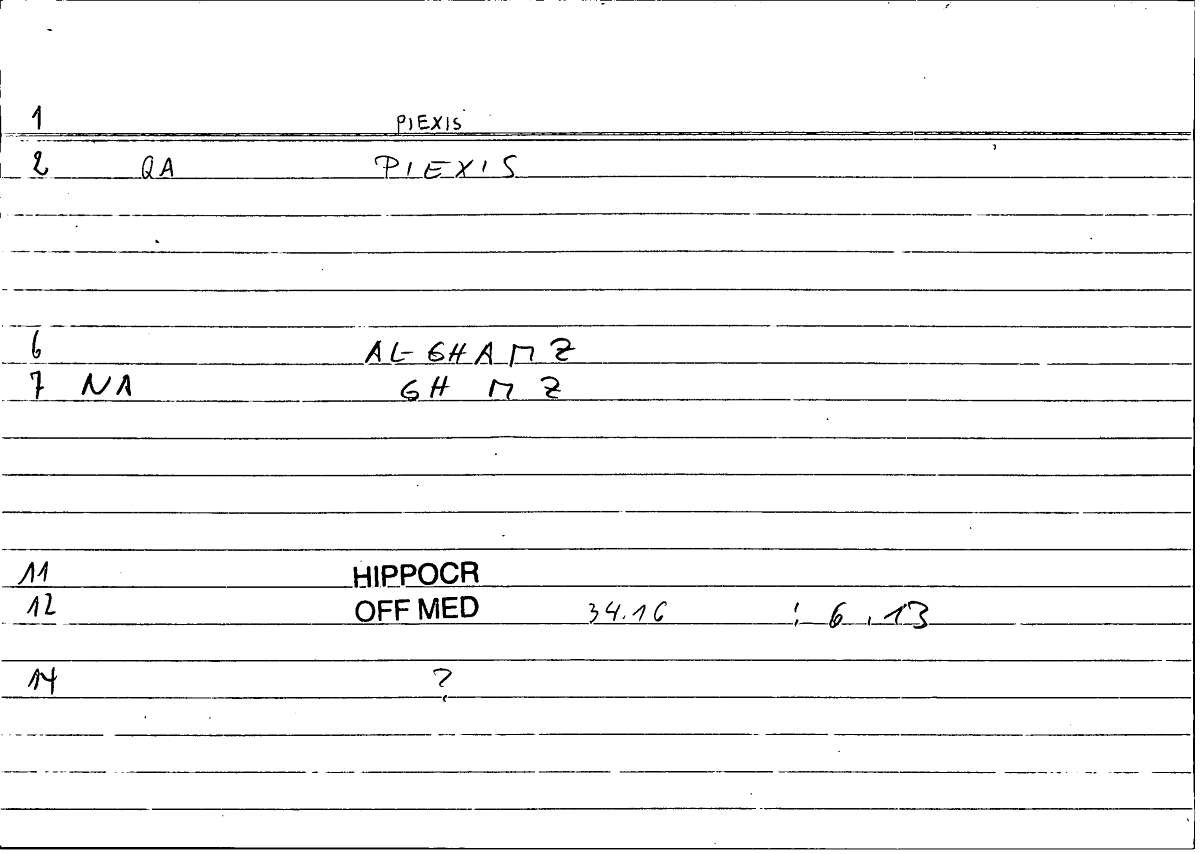 1 PIEXIS
2 QA PIEXIS
6 AL-GHAMZ
7 NA GH MZ
11 HIPPOCR
12 OFF MED 34.16 ; 6 , 13
14 ?